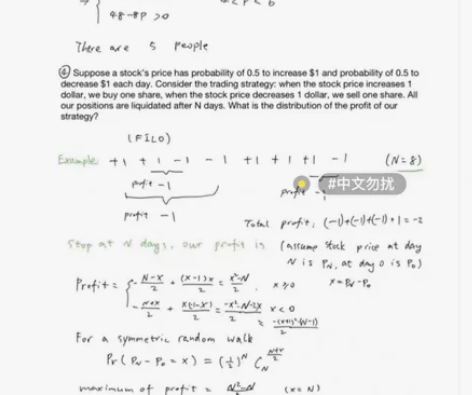 48-8P > 0
There are 5 people
④ Suppose a stock's price has probability of 0.5 to increase $1 and probability of 0.5 to
decrease $1 each day. Consider the trading strategy: when the stock price increases 1
dollar, we buy one share, when the stock price decreases 1 dollar, we sell one share. All
our positions are liquidated after N days. What is the distribution of the profit of our
strategy?
(FILO)
Example: +1 +1 -1 -1 +1 +1 +1 -1 (N=8)
profit -1 profit -1
#中文勿扰
profit -1
Total profit: (-1)+(-1)+(-1)+1 = -2
Stop at N days, our profit is (assume stock price at day
N is P_N, at day 0 is P_0)
Profit = { -(N-x)/2 + (x-1)x/2 = (x²-N)/2 , x≥0 x = P_N - P_0
-(N+x)/2 + x(1-x)/2 = (-x²-N-2x)/2 x<0
For a symmetric random walk
Pr(P_N - P_0 = x) = (1/2)^N C_N^{(N+x)/2}
maximum of profit = (N²-N)/2 (x=N)